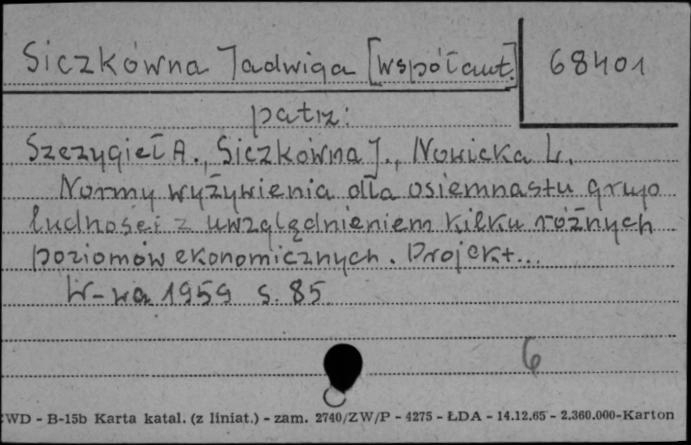 Siczkówna Jadwiga [współaut.] 68401
patrz:
Szczygieł A., Siczkówna J., Nowicka L.
Normy wyżywienia dla osiemnastu grup
ludności z uwzględnieniem kilku różnych
poziomów ekonomicznych. Projekt...
W-wa 1959 s. 85
6
WD - B-15b Karta katal. (z liniat.) - zam. 2740/ZW/P - 4275 - ŁDA - 14.12.65 - 2.360.000-Karton